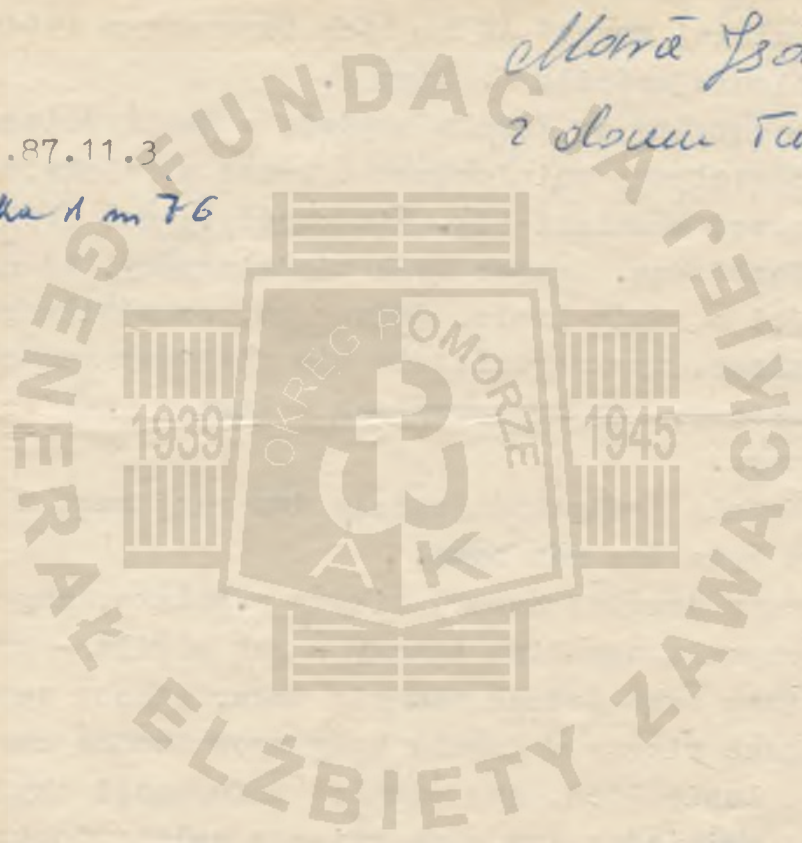 Maria
z domu
.87.11.3
1 m 76
FUNDACJA
GENERAŁ ELŻBIETY ZAWACKIEJ
OKRĘG POMORZE
1939 1945
AK